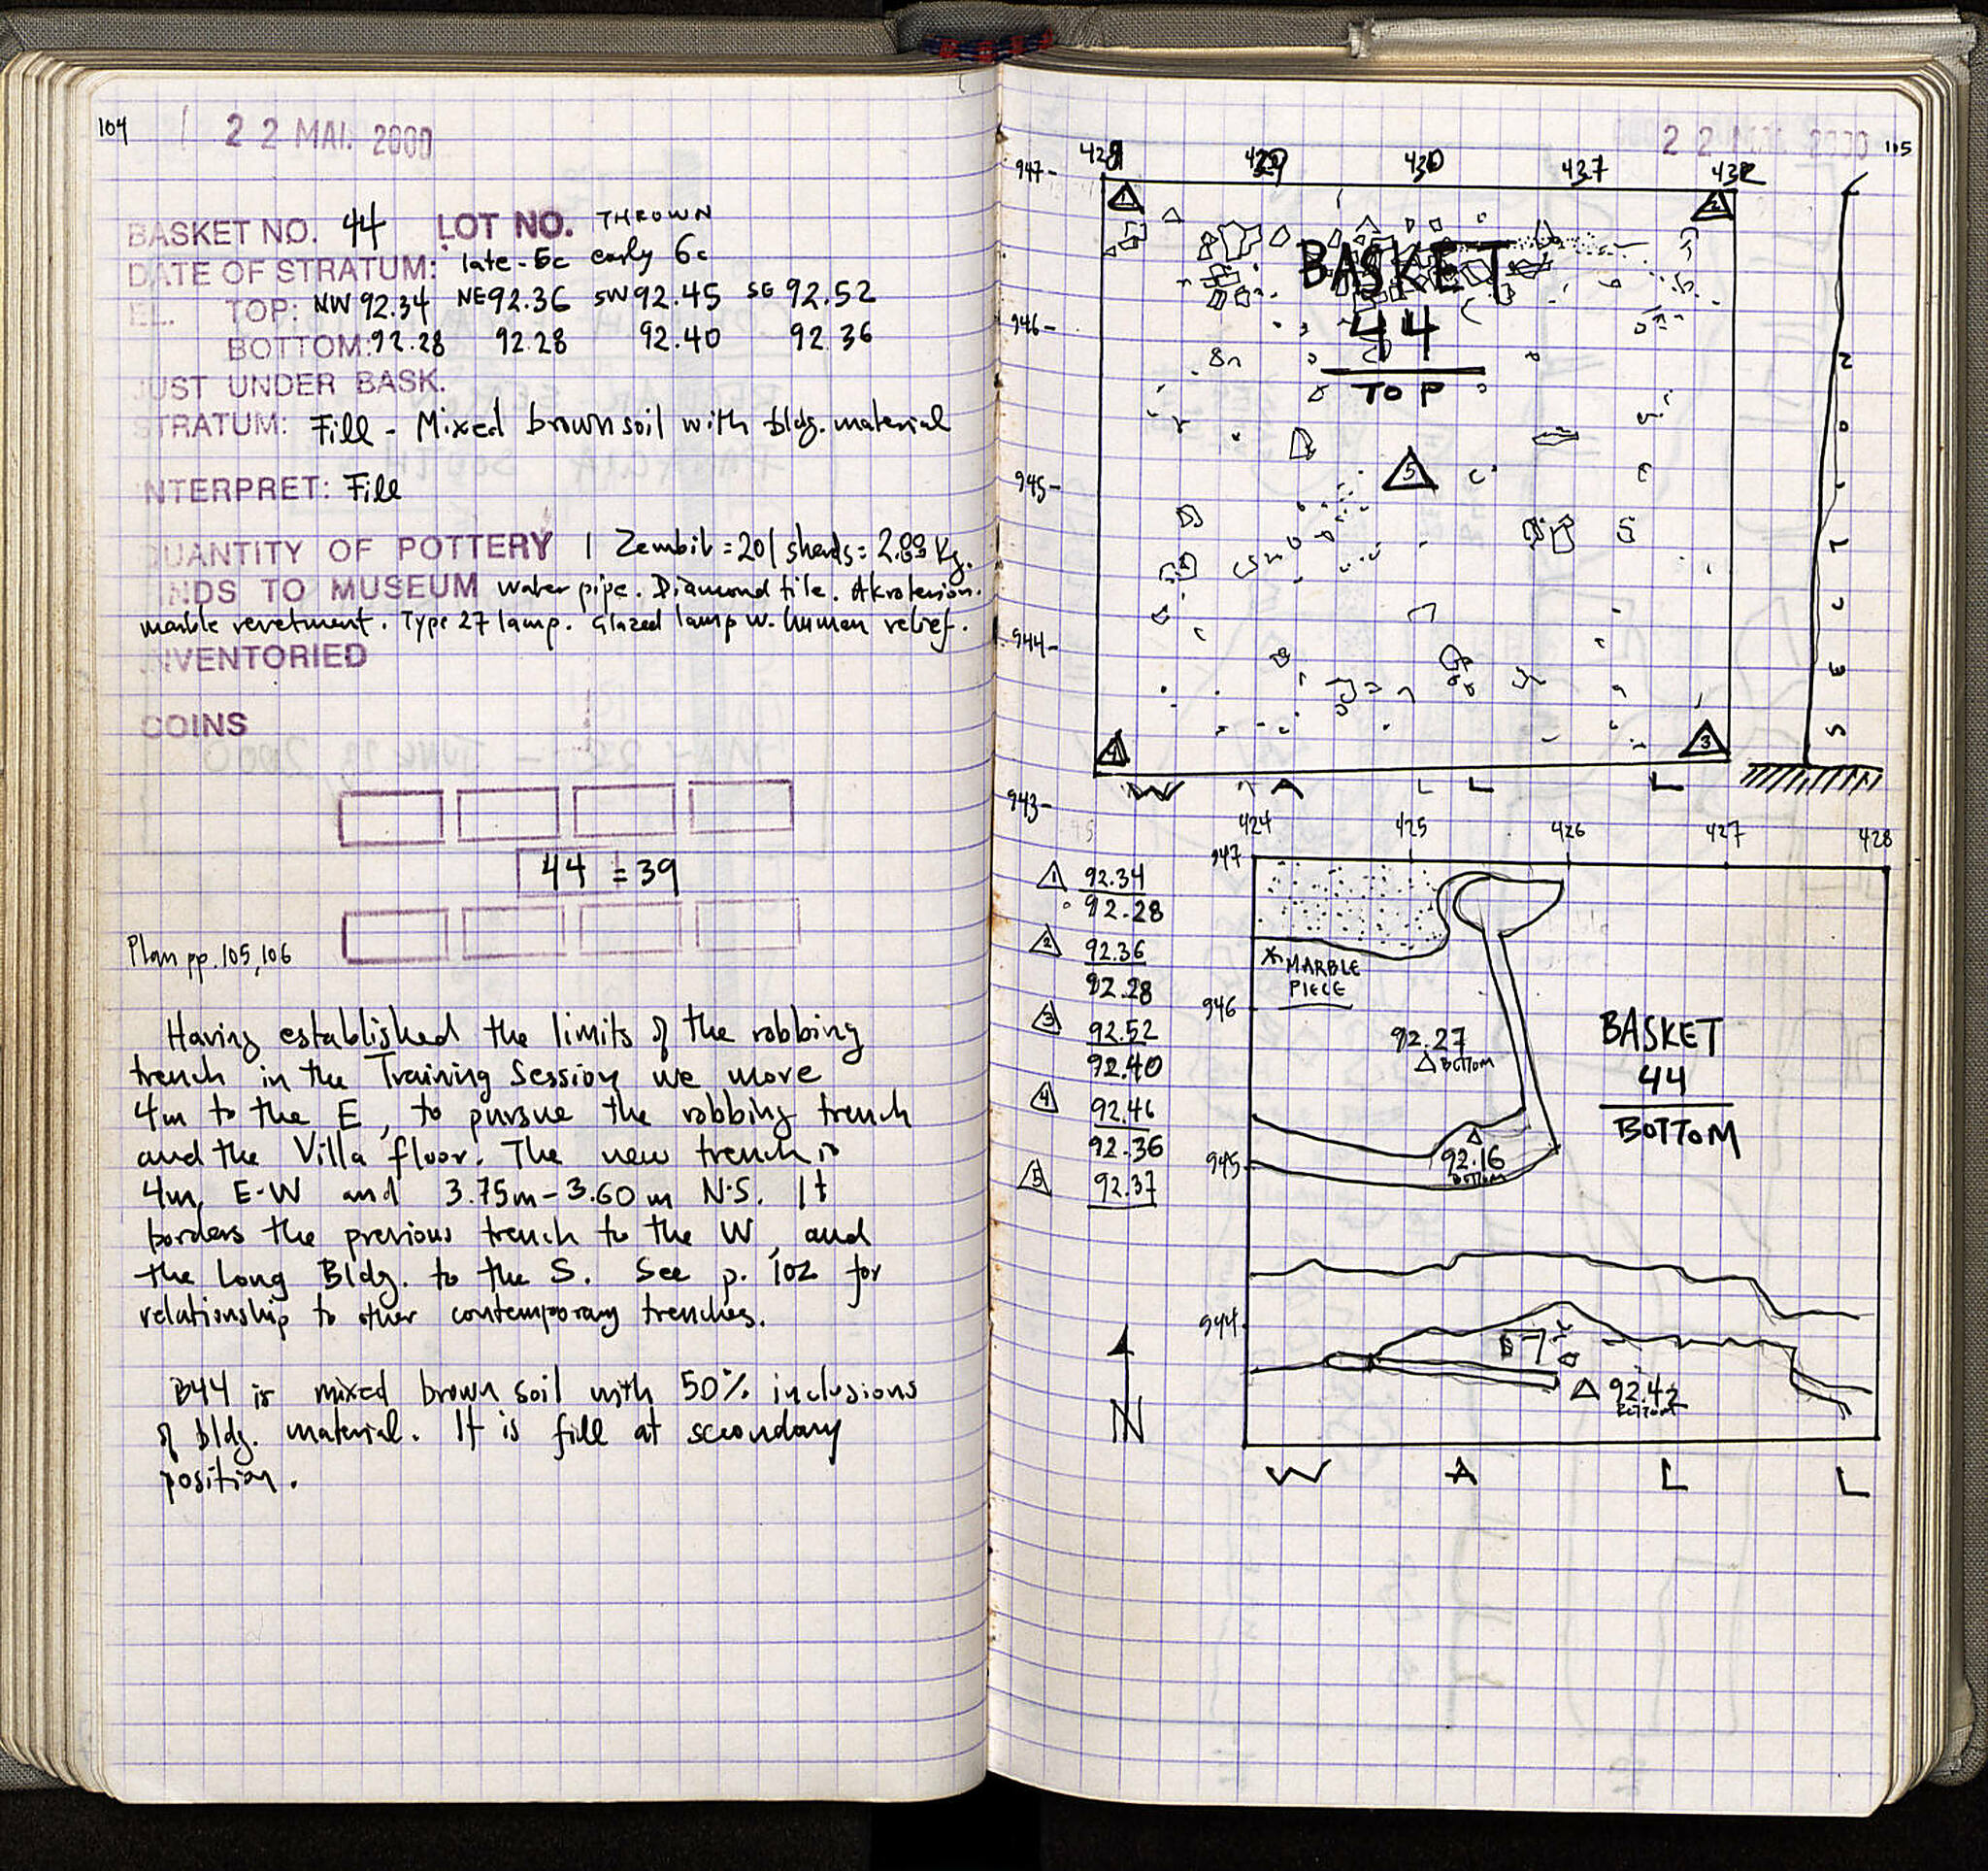 104
22 MAI. 2000
BASKET NO. 44 LOT NO. THROWN
DATE OF STRATUM: late-5c early 6c
EL. TOP: NW 92.34 NE 92.36 SW 92.45 SE 92.52
BOTTOM: 92.28 92.28 92.40 92.36
JUST UNDER BASK.
STRATUM: Fill - Mixed brown soil with bldg. material
INTERPRET: Fill
QUANTITY OF POTTERY 1 Zembil = 201 sherds = 2.89 Kg.
FINDS TO MUSEUM water pipe. Diamond tile. Akroterion.
marble revetment. Type 27 lamp. Glazed lamp w. human relief.
INVENTORIED
COINS
44 = 39
Plan pp. 105, 106
Having established the limits of the robbing
trench in the Training Session we move
4m to the E, to pursue the robbing trench
and the Villa floor. The new trench is
4m, E-W and 3.75m-3.60m N-S. It
borders the previous trench to the W, and
the Long Bldg. to the S. See p. 102 for
relationship to other contemporary trenches.
B44 is mixed brown soil with 50% inclusions
of bldg. material. It is fill at secondary
position.
22 MAI 2000
105
428 429 430 437 432
947-
946-
945-
944-
943-
1
2
BASKET
44
TOP
5
4
3
W A L L
1 92.34
92.28
2 92.36
92.28
3 92.52
92.40
4 92.46
92.36
5 92.37
N
424 425 426 427 428
947
946
945
944
* MARBLE
PIECE
92.27
BOTTOM
BASKET
44
BOTTOM
92.16
BOTTOM
92.42
BOTTOM
W A L L